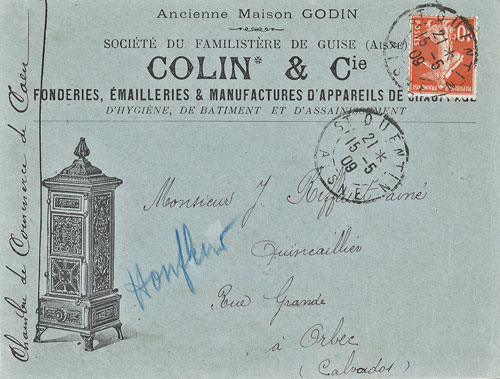 Ancienne Maison GODIN
SOCIÉTÉ DU FAMILISTÈRE DE GUISE (Aisne)
COLIN* & Cie
FONDERIES, ÉMAILLERIES & MANUFACTURES D'APPAREILS DE CHAUFFAGE
D'HYGIÈNE, DE BATIMENT ET D'ASSAINISSEMENT
ST QUENTIN
21 *
15-5
09
AISNE
10
POSTES
ST QUENTIN
21 *
15-5
09
AISNE
Chambre de Commerce de Caen
Monsieur J. aîné
Quincaillier
Honfleur
Rue Grande
à Orbec
(Calvados)